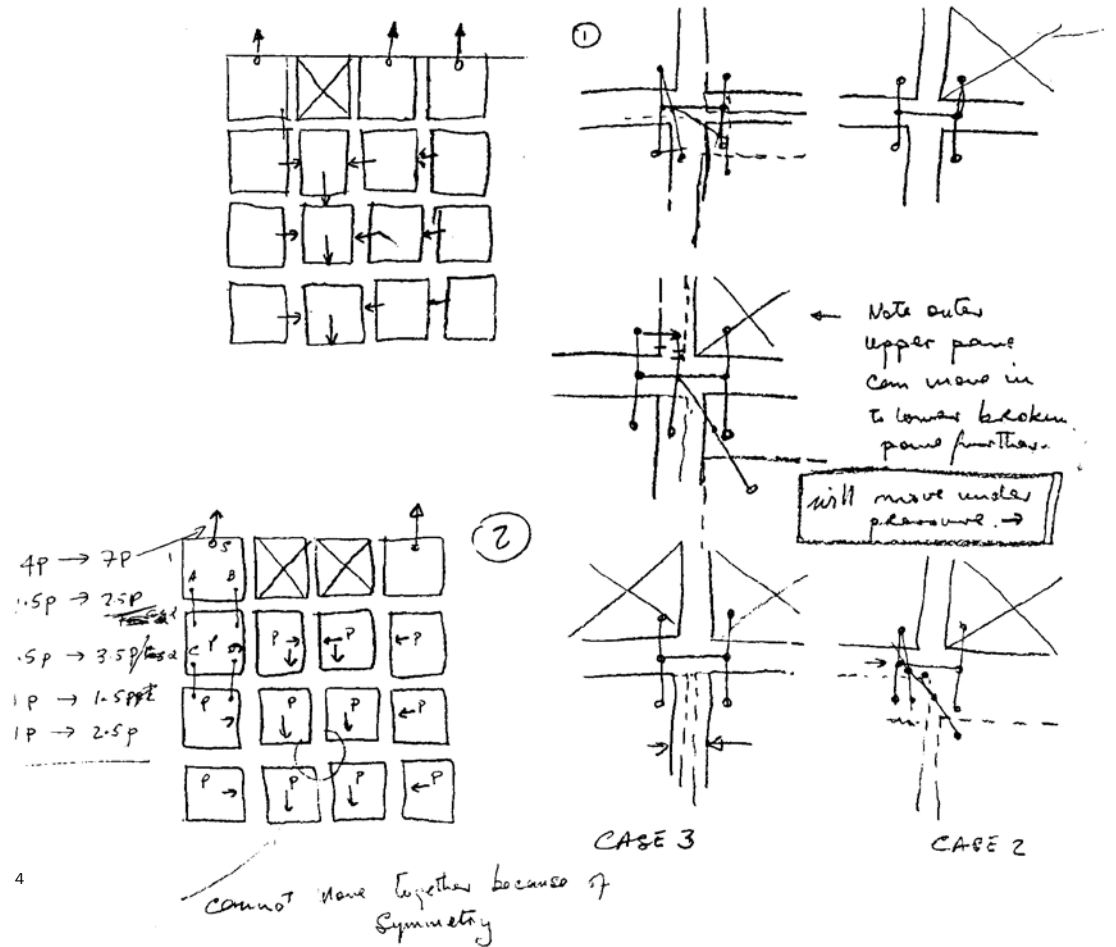 ①
Note outer
upper pane
can move in
to lower broken
pane further.
will move under
pressure →
②
4P → 7P
.5P → 2.5P
.5P → 3.5P
1P → 1.5P
1P → 2.5P
S
A B
P P P P
C
P P P P
P P P P
CASE 3
CASE 2
4
cannot move together because of
symmetry